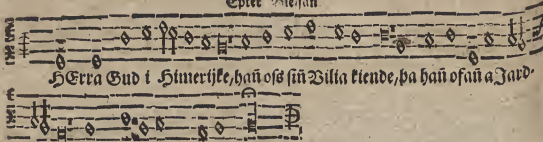 Epter
HErra Gud i Himerijke, hañ oſs ſiñ Vilia kiende, þa hañ ofañ a Jard-